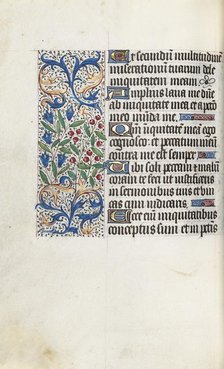 Et secundum multitudinem
miserationum tuarum dele
iniquitatem meam
Amplius lava me
ab iniquitate mea et a pecca
meo munda me
Qm iniquitatē meā ego
cognosco et peccatum meū
contra me est semper
Tibi soli peccavi et malū
coram te feci ut iustificeris
in sermonibus tuis et vin
cas cum iudicaris
Ecce eni iniquitatibus
conceptus sum et in pctis